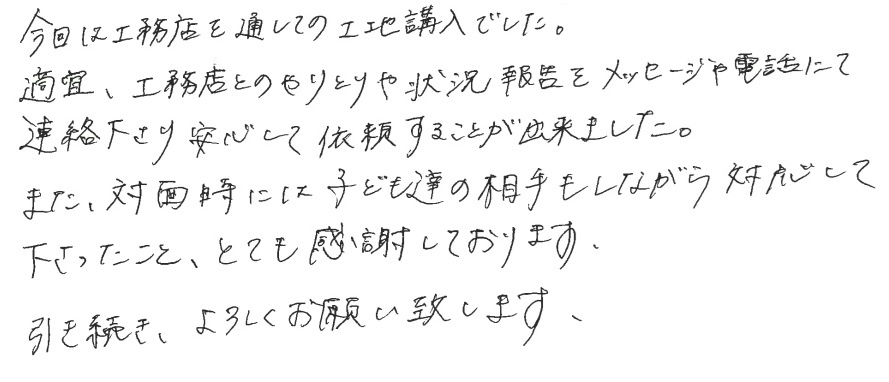 今回は工務店を通しての土地購入でした。
適宜、工務店とのやりとりや状況報告をメッセージや電話にて
連絡下さり安心して依頼することが出来ました。
また、対面時には子ども達の相手もしながら対応して
下さったこと、とても感謝しております、
引き続き、よろしくお願い致します、